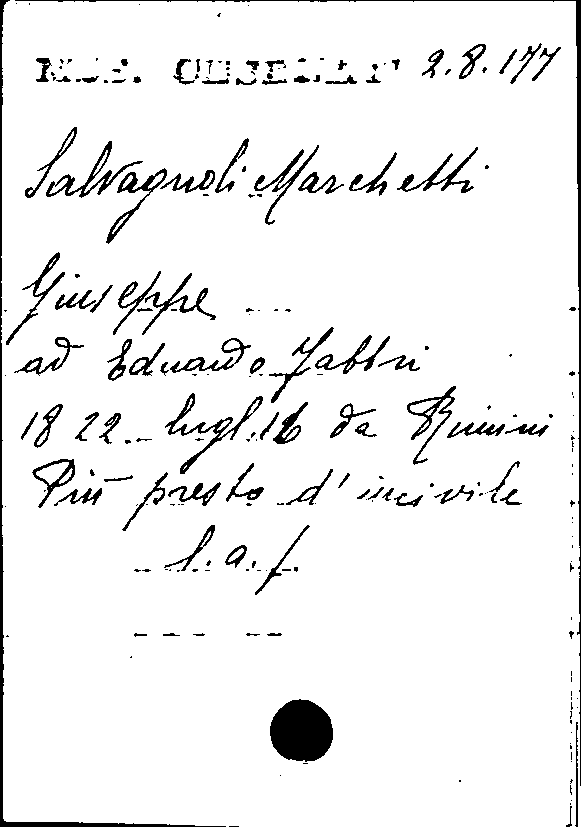 MSS. CESENAT 2.8.177
Salvagnoli Marchetti
Giuseppe
ad Eduardo Fabbri
1822 lugl. 16 da Rimini
Più presto d'incivile
l.a.f.